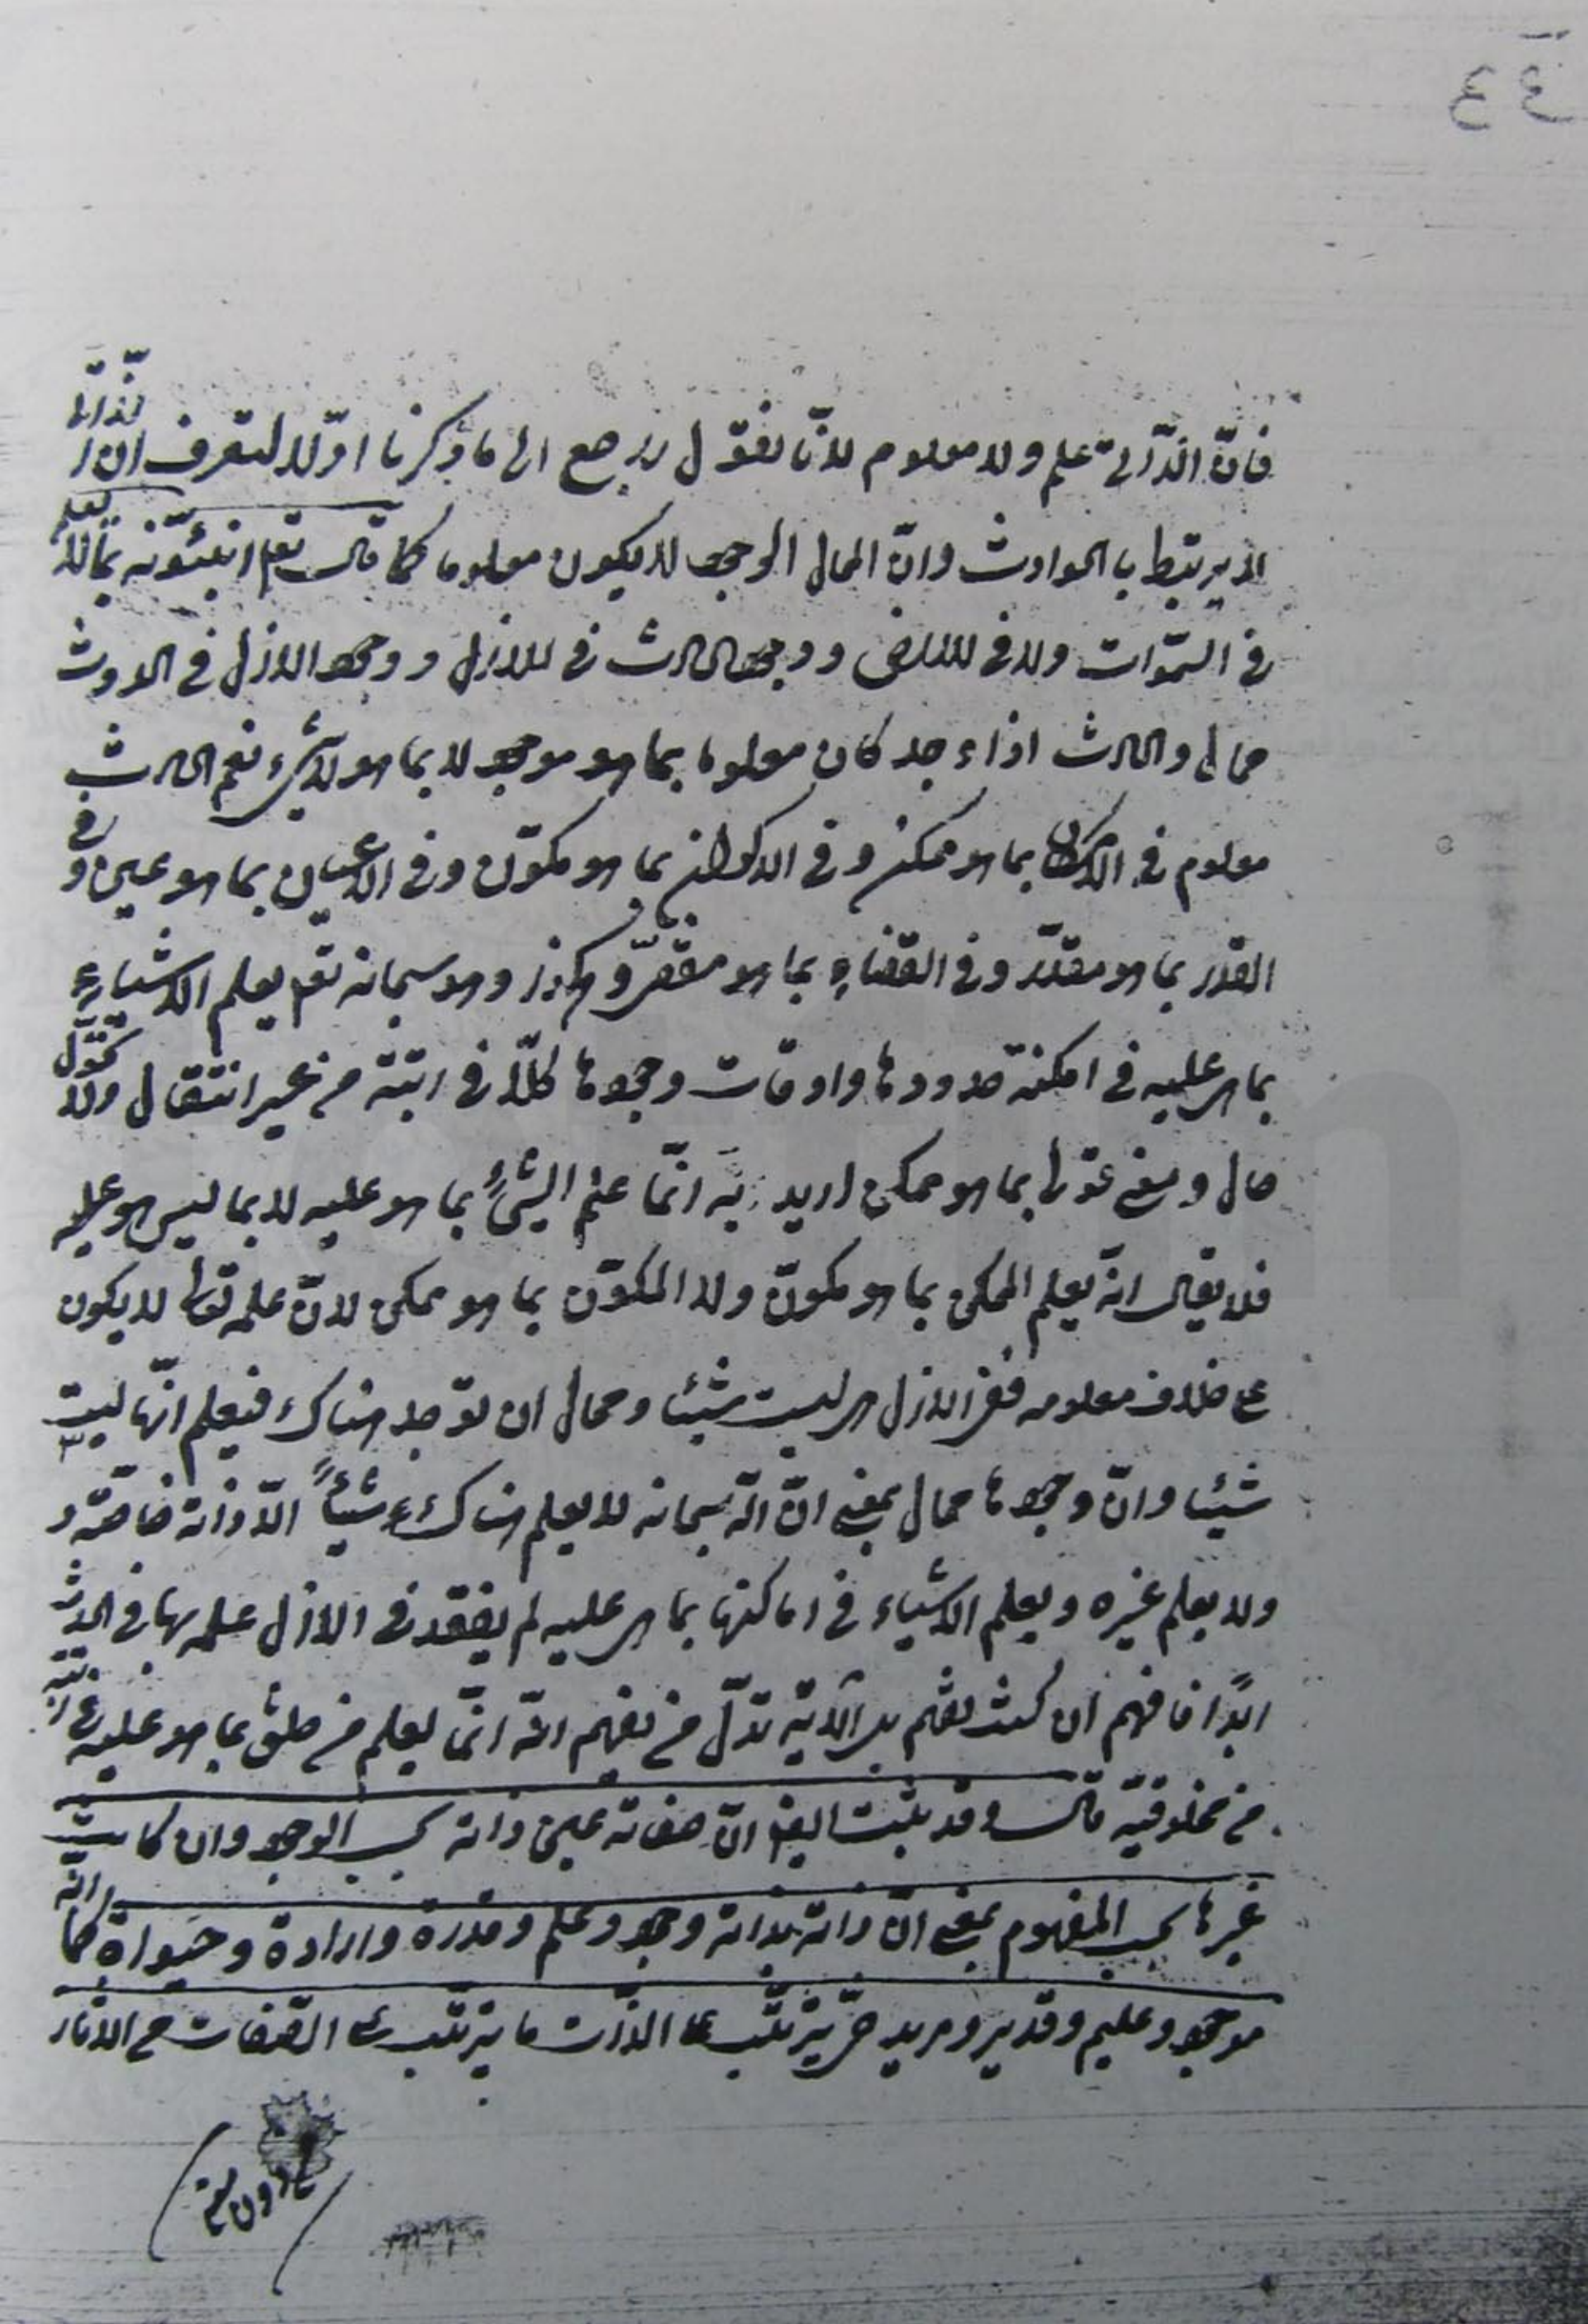 فانّ الذّاتى علم ولا معلوم لانّا نقول نرجع الى ما ذكرنا اوّلا لتعرف ان الذّات
لا يرتبط بالحوادث وانّ المحال الوجود لا يكون معلوما كما قال تعم اتنبئونه بما لا يعلم
فى السّموات ولا فى الارض ووجود الحادث فى الازل ووجود الازل فى الحدوث
محال والحادث اذا وجد كان معلوما بما هو موجود لا بما هو لا شىء نعم الحادث
معلوم فى الامكان بما هو ممكن وفى الاكوان بما هو مكوّن وفى الاعيان بما هو عين وفى
القدر بما هو مقدّر وفى القضاء بما هو مقضىّ وهكذا وهو سبحانه تعم يعلم الاشياء
بما هى عليه فى امكنة حدودها واوقات وجودها كلّا فى رتبته من غير انتقال ولا تحوّل
حال ومعنى قولى بما هو ممكن اريد به انّما علم الشىء بما هو عليه لا بما ليس هو عليه
فلا يقال انّه يعلم الممكن بما هو مكوّن ولا المكوّن بما هو ممكن لانّ علمه تعالى لا يكون
على خلاف معلومه ففى الازل هى ليست شيئا ومحال ان توجد هناك فيعلم انّها ليست
شيئا وانّ وجودها محال بمعنى انّ اللّه سبحانه لا يعلم هناك شيئاً الّا ذاته خاصّة و
ولا يعلم غيره ويعلم الاشياء فى اماكنها بما هى عليه لم يفقد فى الازل علمه بها فى الحدث
ابدًا فافهم ان كنت تفهم بل الآية تدلّ من يفهم انّه انّما يعلم من خلق بما هو عليه فى رتبته
من مخلوقيّته قال وقد ثبت ايضا انّ صفاته عين ذاته بحسب الوجود وان كانت
غيرها بحسب المفهوم بمعنى انّ ذاته بذاته وجود وعلم وقدرة وارادة وحيوة كما انّه
موجود وعليم وقدير ومريد حىّ يترتّب على الذّات ما يترتّب على الصّفات من الآثار